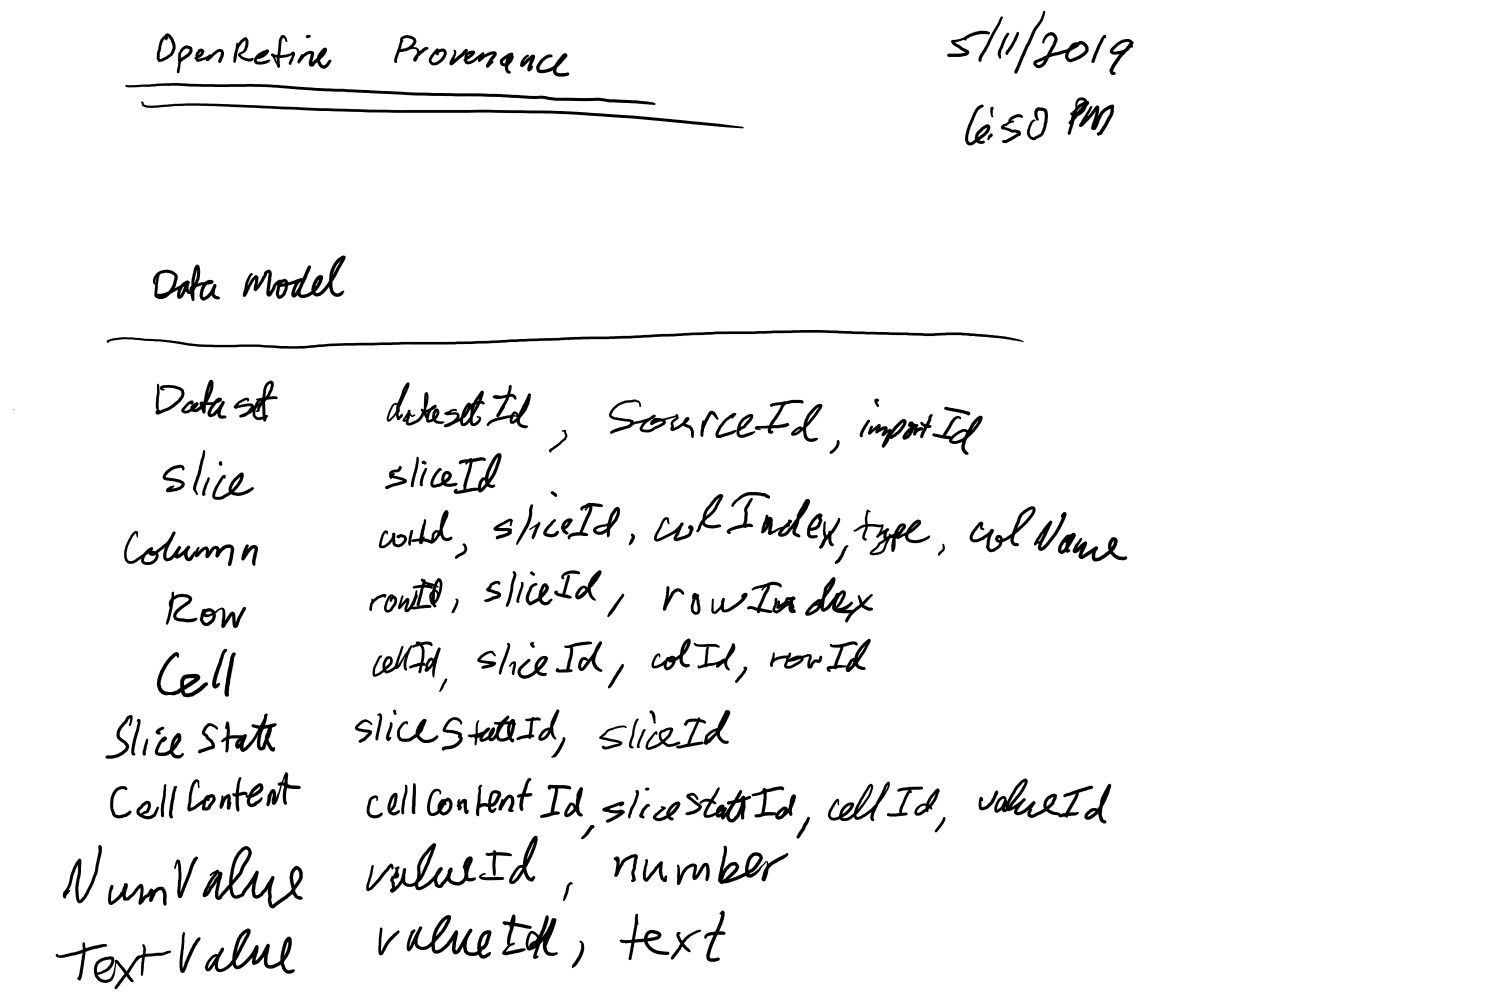 OpenRefine Provenance 5/11/2019
6:50 PM
Data Model
Dataset datasetId, SourceId, importId
Slice sliceId
Column colId, sliceId, colIndex, type, colName
Row rowId, sliceId, rowIndex
Cell cellId, sliceId, colId, rowId
SliceState sliceStateId, sliceId
CellContent cellContentId, sliceStateId, cellId, valueId
NumValue valueId, number
TextValue valueId, text